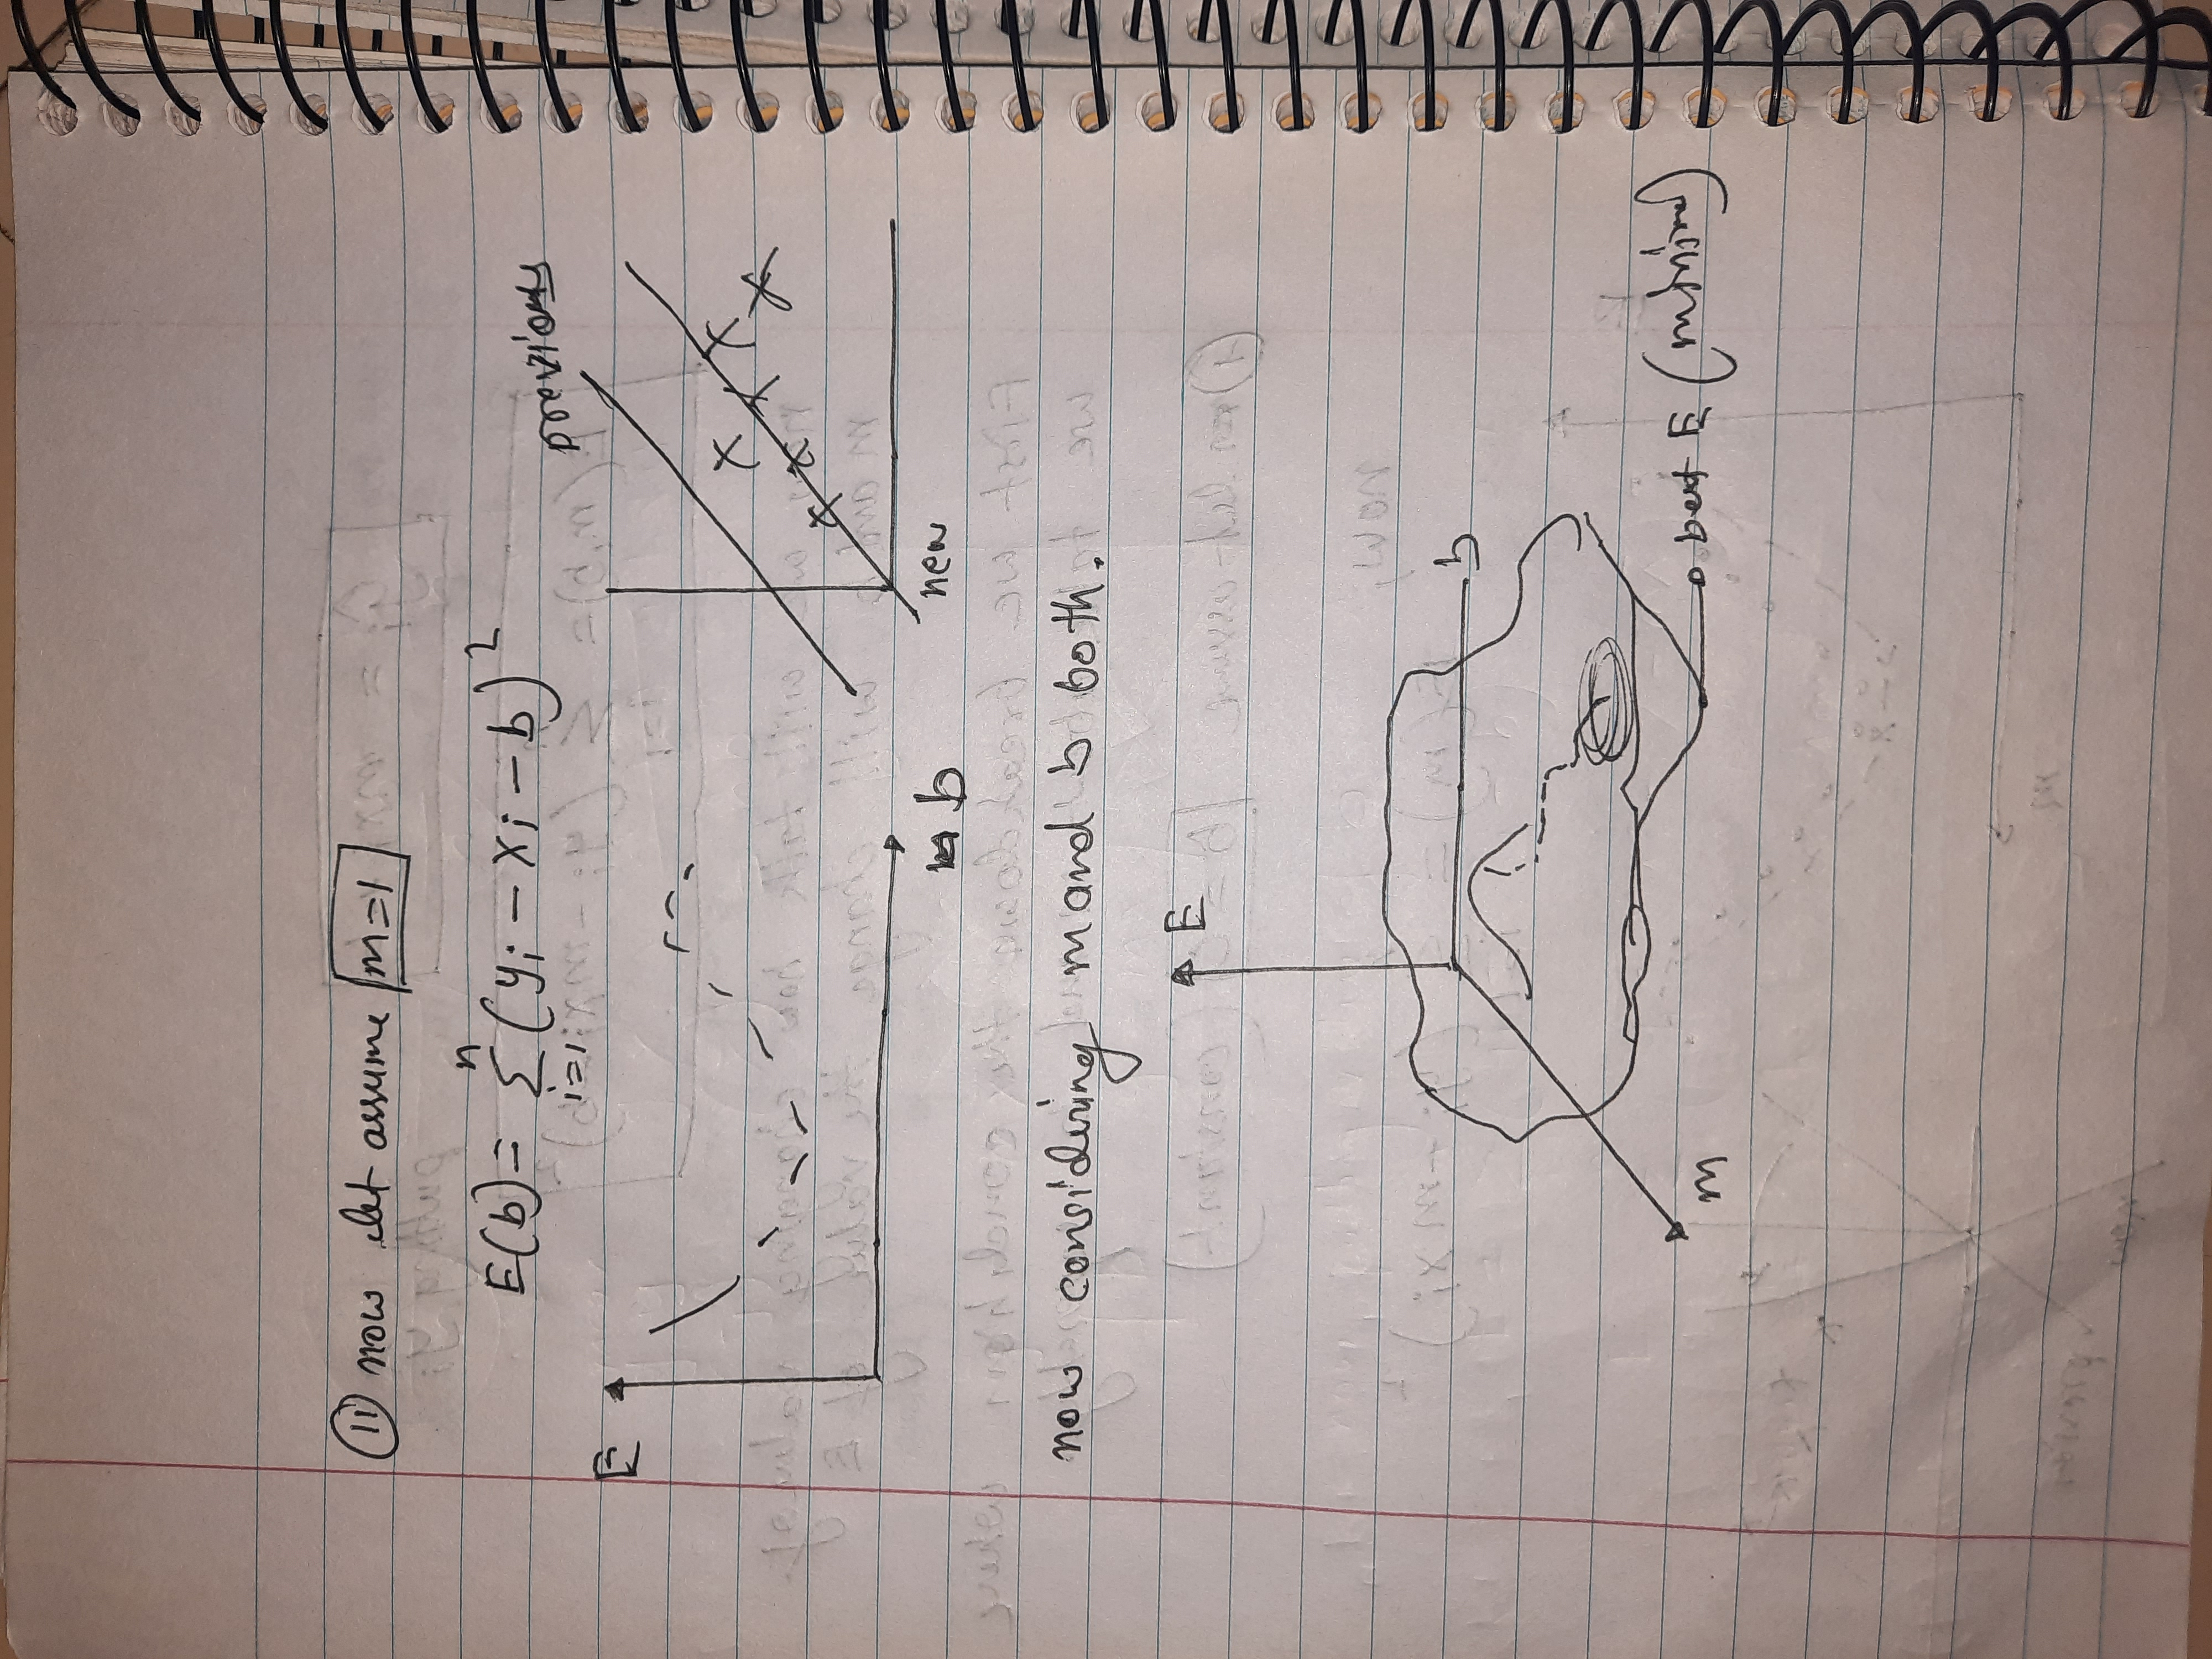 (ii) now let assume m=1
E(b) = n∑i=1 (yi - xi - b)²
previous
E
b
new
now considering m and b both.
E
b
m
best E (minima)